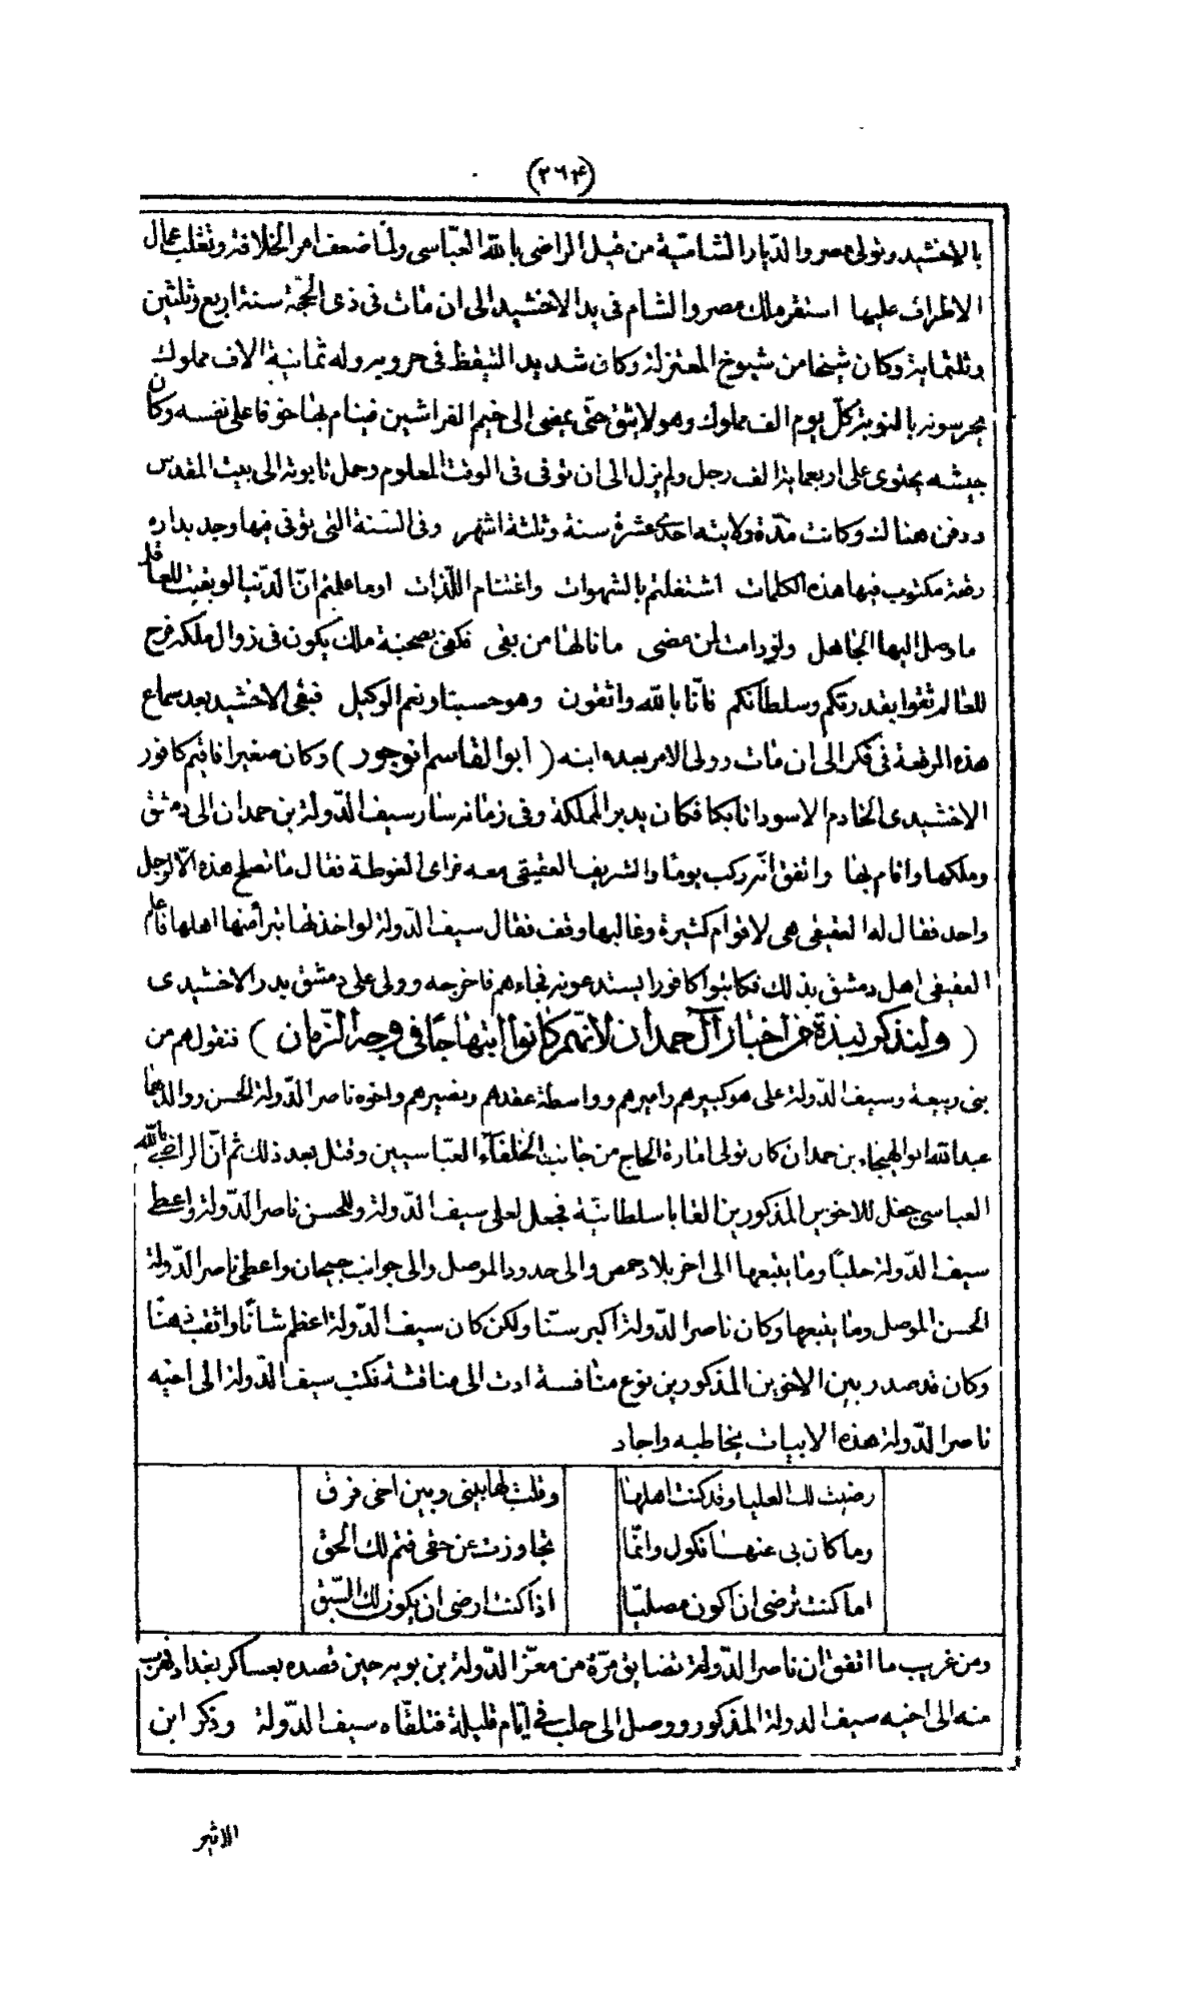 (٢٦٤)
بالاخشيد وتولى مصر والدّيار الشاميّة من قبل الراضى بالله العبّاسى ولمّا ضعف امر الخلافة وتغلب عمال
الاطراف عليها استقر ملك مصر والشام فى يد الاخشيد الى ان مات فى ذى الحجّة سنة اربع وثلثين
وثلثماية وكان شيخا من شيوخ المعتزلة وكان شديد التيقظ فى حروبه وله ثمانية الاف مملوك
يحرسونه بالنوبة كلّ يوم الف مملوك وهو لا يثق حتّى يمضى الى خيم الفراشين فينام بها خوفا على نفسه وكان
جيشه يحتوى على اربعماية الف رجل ولم يزل الى ان توفى فى الوقت المعلوم وحمل تابوته الى بيت المقدس
ودفن هنالك وكانت مدّة ولايته احدى عشرة سنة وثلثة اشهر وفى السّنة التى توفى فيها وجد بداره
رقعة مكتوب فيها هذه الكلمات اشتغلتم بالشهوات واغتنام اللّذات اوما علمتم انّ الدّنيا لو بقيت للعاقل
ما وصل اليها الجاهل ولو دامت لمن مضى ما نالها من بقى فكفى بصحبة ملك يكون فى زوال ملكه فرح
للعالم ثقوا بقدرتكم وسلطانكم فانّا بالله واثقون وهو حسبنا ونعم الوكيل فبقى الاخشيد بعد سماع
هذه الرقعة فى فكر الى ان مات وولى الامر بعده ابنه ( ابو القاسم انوجور ) وكان صغيرا فاقيم كافور
الاخشيدى الخادم الاسود اتابكا فكان يدبر المملكة وفى زمانه سار سيف الدّولة بن حمدان الى دمشق
وملكها واقام بها واتفق انّه ركب يوما والشريف العقيقى معه فراى الغوطة فقال ما تصلح هذه الّا لرجل
واحد فقال له العقيقى هى لاقوام كثيرة وغالبها وقف فقال سيف الدّولة لو اخذتها لتبرأ منها اهلها فاعلم
العقيقى اهل دمشق بذلك فكاتبوا كافورا يستدعونه فجاءهم فاخرجه وولى على دمشق بدر الاخشيدى
( ولنذكر نبذة من اخبار آل حمدان لانّهم كانوا ابتهاجا فى وجه الزّمان ) فنقول هم من
بنى ربيعة وسيف الدّولة على هو كبيرهم واميرهم وواسطة عقدهم ونصيرهم واخوه ناصر الدّولة الحسن ووالدهما
عبد الله ابو الهيجاء بن حمدان كان تولى امارة الحاج من جانب الخلفآء العبّاسيين وقتل بعد ذلك ثم انّ الراضى بالله
العباسى جعل للاخوين المذكورين القابا سلطانيّة فجعل لعلى سيف الدّولة وللحسن ناصر الدّولة واعطى
سيف الدّولة حلبًا وما يتبعها الى اخر بلاد حمص والى حدود الموصل والى جوانب جيحان واعطى ناصر الدّولة
الحسن الموصل وما يتبعها وكان ناصر الدّولة اكبر سنّا ولكن كان سيف الدّولة اعظم شانًا واثقب ذهنًا
وكان قد صدر بين الاخوين المذكورين نوع منافسة ادت الى مناقشة فكتب سيف الدّولة الى اخيه
ناصر الدّولة هذه الابيات يخاطبه واجاد
رضيت لك العليا وقد كنت اهلها وقلت لها بينى وبين اخى فرق
وما كان بى عنها نكول وانّما تجاوزت عن حقى فتم لك الحق
اما كنت ترضى ان اكون مصليّا اذا كنت ارضى ان يكون لك السّبق
ومن غريب ما اتفق ان ناصر الدّولة تضايق مرّة من معزّ الدّولة بن بويه حين قصده بعساكر بغداد فهرب
منه الى اخيه سيف الدولة المذكور ووصل الى حلب فى ايّام قليلة فتلقّاه سيف الدّولة وذكر ابن
الاثير